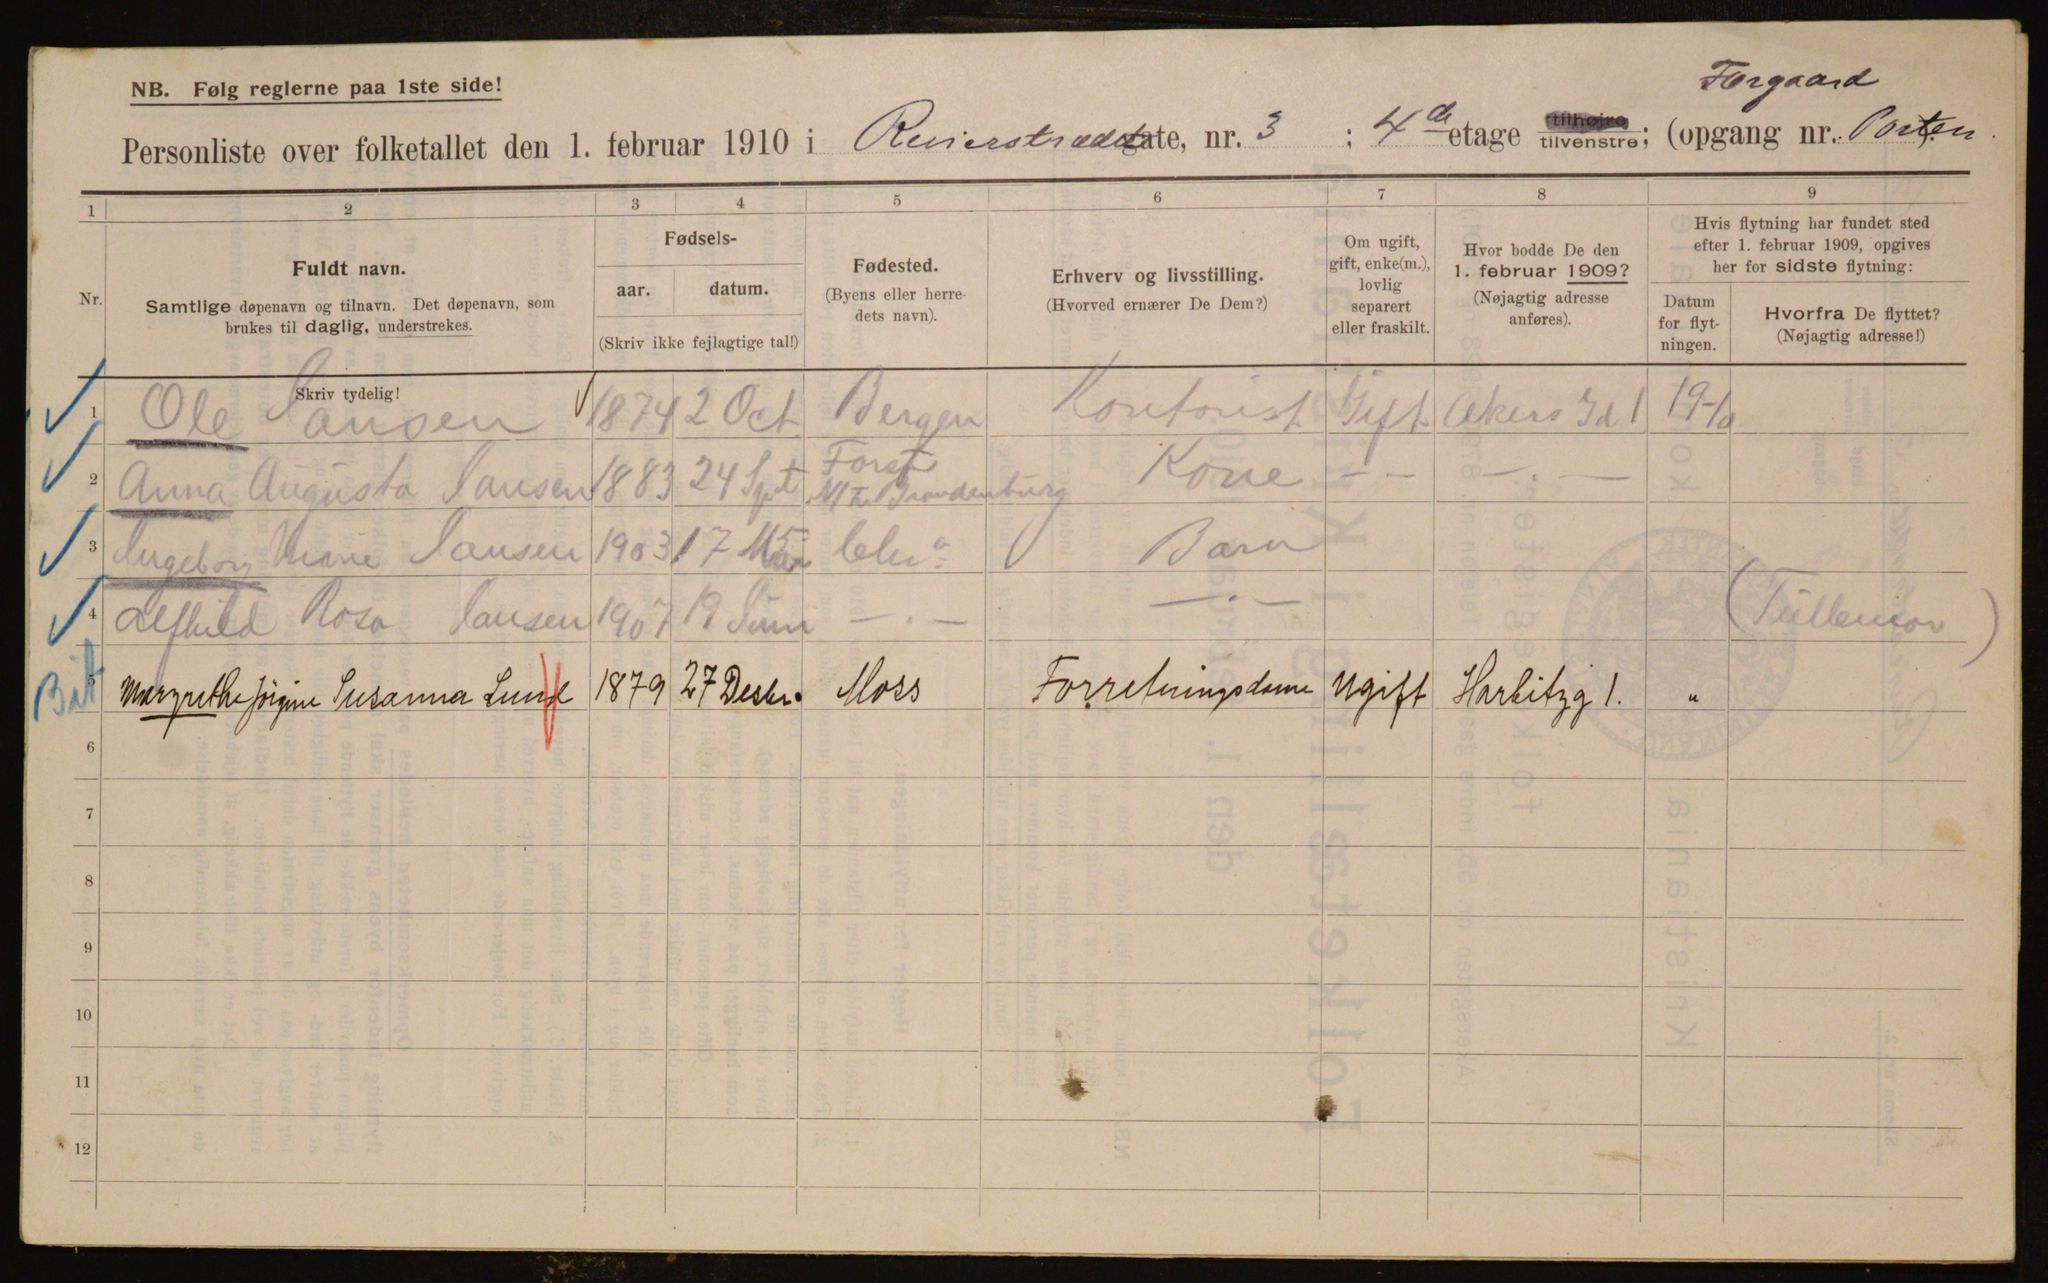 NB. Følg reglerne paa 1ste side!
Forgaard
Personliste over folketallet den 1. februar 1910 i Revierstrædet gate, nr. 3 ; 4de etage tilhøjre tilvenstre; (opgang nr. Porten).
1 2 3 4 5 6 7 8 9
Nr.
Fuldt navn.
Samtlige døpenavn og tilnavn. Det døpenavn, som
brukes til daglig, understrekes.
Skriv tydelig!
Fødsels-
aar. datum.
(Skriv ikke fejlagtige tal!)
Fødested.
(Byens eller herre-
dets navn).
Erhverv og livsstilling.
(Hvorved ernærer De Dem?)
Om ugift,
gift, enke(m.),
lovlig
separert
eller fraskilt.
Hvor bodde De den
1. februar 1909?
(Nøjagtig adresse
anføres).
Hvis flytning har fundet sted
efter 1. februar 1909, opgives
her for sidste flytning:
Datum
for flyt-
ningen.
Hvorfra De flyttet?
(Nøjagtig adresse!)
1 Ole Jansen 1874 2 Oct Bergen Kontorist Gift Akers Gd 1 19-10
2 Anna Augusta Jansen 1883 24 Spt Forst Brandenburg Kone — - — - . —
3 Ingeborg Marie Jansen 1903 17 Chra Barn
4 Alfhild Rosa Jansen 1907 19 Juni — . — — . — (Tullemor)
5 Margrethe Jørgine Susanna Lund 1879 27 Desbr. Moss Forretningsdame Ugift Harbitzg 1. "
6
7
8
9
10
11
12